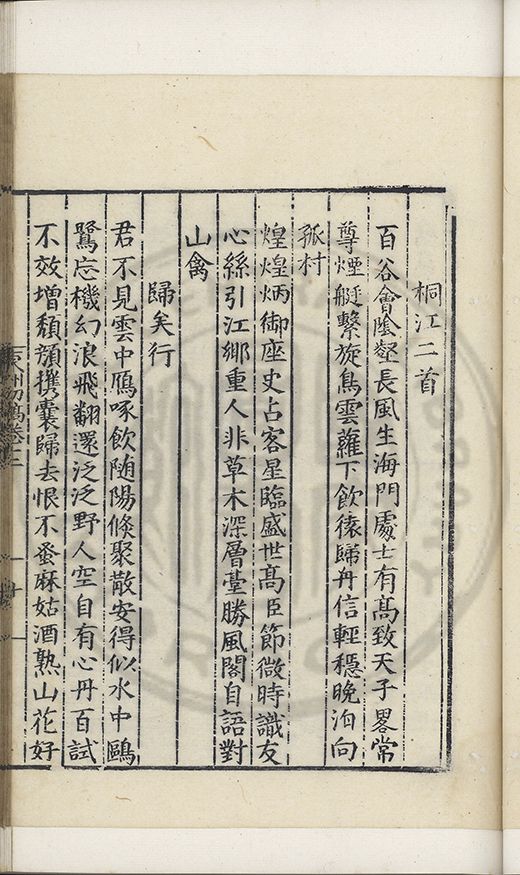 桐江二首
百谷會陰壑長風生海門處士有髙致天子畧常
尊煙艇繫旋鳥雲蘿下飲猿歸舟信輕穩晚泊向
孤村
煌煌炳御座史占客星臨盛世髙臣節微時識友
心絲引江郷重人非草木深層臺勝風閣自語對
山禽
歸矣行
君不見雲中鴈啄飲随陽倐聚散安得似水中鷗
鷺忘機幻浪飛翻還泛泛野人空自有心丹百試
不效增頽顏携囊歸去恨不蚤麻姑酒熟山花好